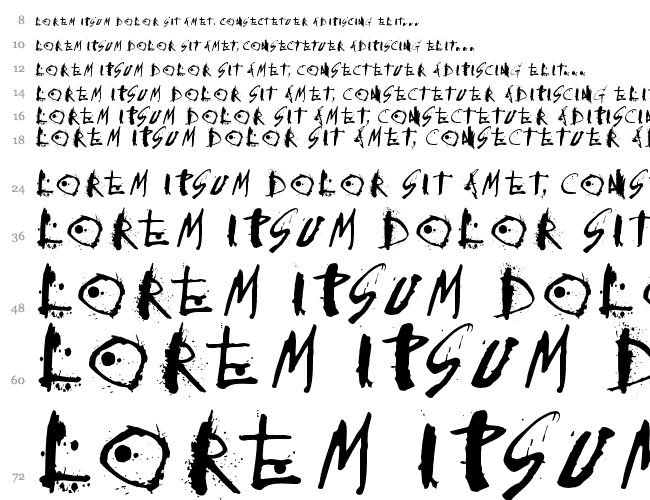 8 LOREM IPSUM DOLOR SIT AMET, CONSECTETUER ADIPISCING ELIT...
10 LOREM IPSUM DOLOR SIT AMET, CONSECTETUER ADIPISCING ELIT...
12 LOREM IPSUM DOLOR SIT AMET, CONSECTETUER ADIPISCING ELIT...
14 LOREM IPSUM DOLOR SIT AMET, CONSECTETUER ADIPISCING ELIT
16 LOREM IPSUM DOLOR SIT AMET, CONSECTETUER ADIPISCING
18 LOREM IPSUM DOLOR SIT AMET, CONSECTETUER AD
24 LOREM IPSUM DOLOR SIT AMET, CONS
36 LOREM IPSUM DOLOR SIT
48 LOREM IPSUM DOLO
60 LOREM IPSUM D
72 LOREM IPSUM